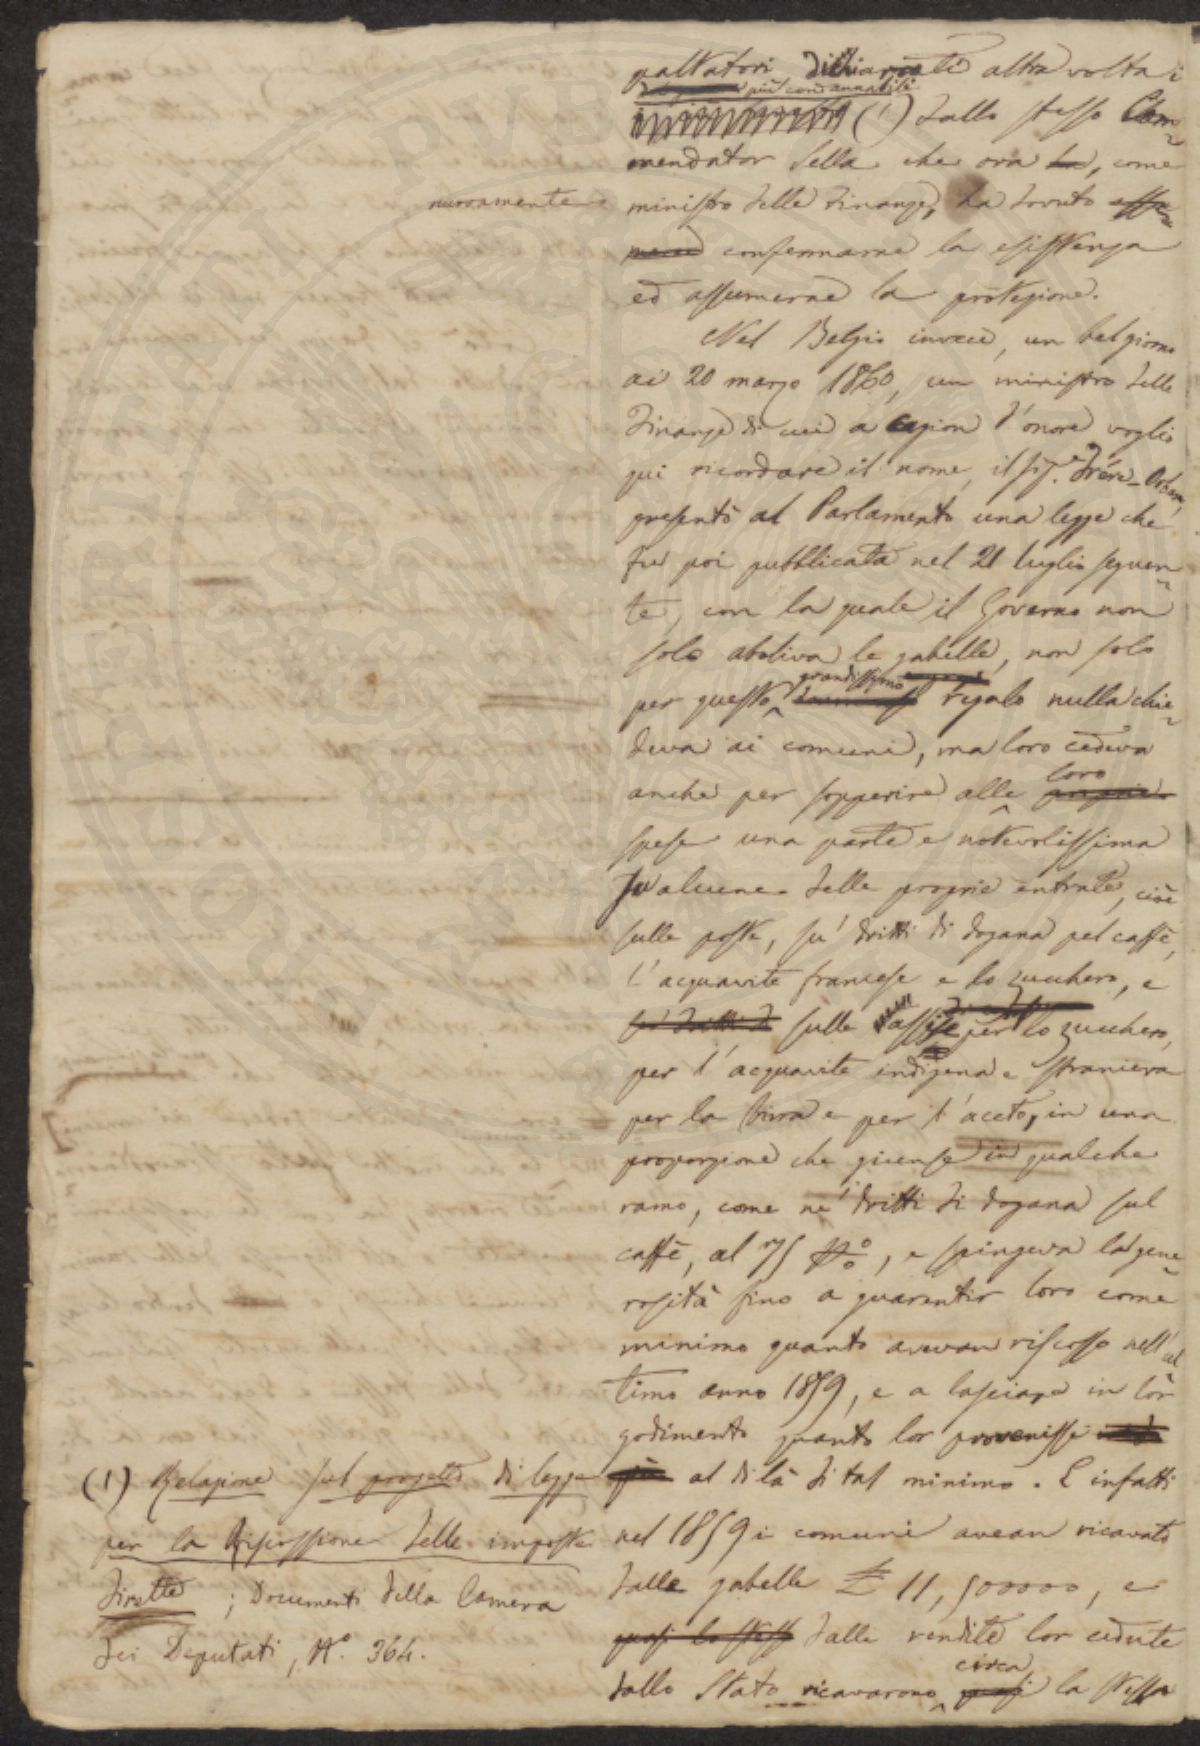 paltatori dichiarati altra volta i
più condannabili
(1) dallo stesso Com=
mendator Sella che ora ha, come
nuovamente
ministro delle Finanze, ha dovuto assu=
mere confermarne la esistenza
ed assumerne la protezione.
Nel Belgio invece, un bel giorno
ai 20 marzo 1860, un ministro delle
Finanze di cui a cagion d'onore voglio
qui ricordare il nome, il sig.e Frére-Orban,
presentò al Parlamento una legge che
fu poi pubblicata nel 21 luglio seguen=
te, con la quale il Governo non
solo aboliva le gabelle, non solo
per questo grandissimo regalo nulla chie=
deva ai comuni, ma loro cedeva
anche per sopperire alle loro proprie
spese una parte e notevolissima
su alcune delle proprie entrate, cioè
sulle poste, su' dritti di dogana pel caffè,
l'acquavite francese e lo zucchero, e
su' dritti di sulle assise per lo zucchero,
per l'acquavite indigena e straniera
per la birra e per l'aceto, in una
proporzione che giunse in qualche
ramo, come ne' dritti di dogana sul
caffè, al 75 %, e spingeva la gene=
rosità fino a guarentir loro come
minimo quanto avevan riscosso nell'ul=
timo anno 1859, e a lasciare in lor
godimento quanto lor provenisse
più al di là di tal minimo. E infatti
nel 1859 i comuni avean ricavato
dalle gabelle £ 11,500000, e
quasi lo stesso dalle rendite lor cedute
dallo Stato ricavarono circa quasi la stessa
(1) Relazione sul progetto di legge
per la Riscossione delle imposte
dirette; Documenti della Camera
dei Deputati, N.º 364.